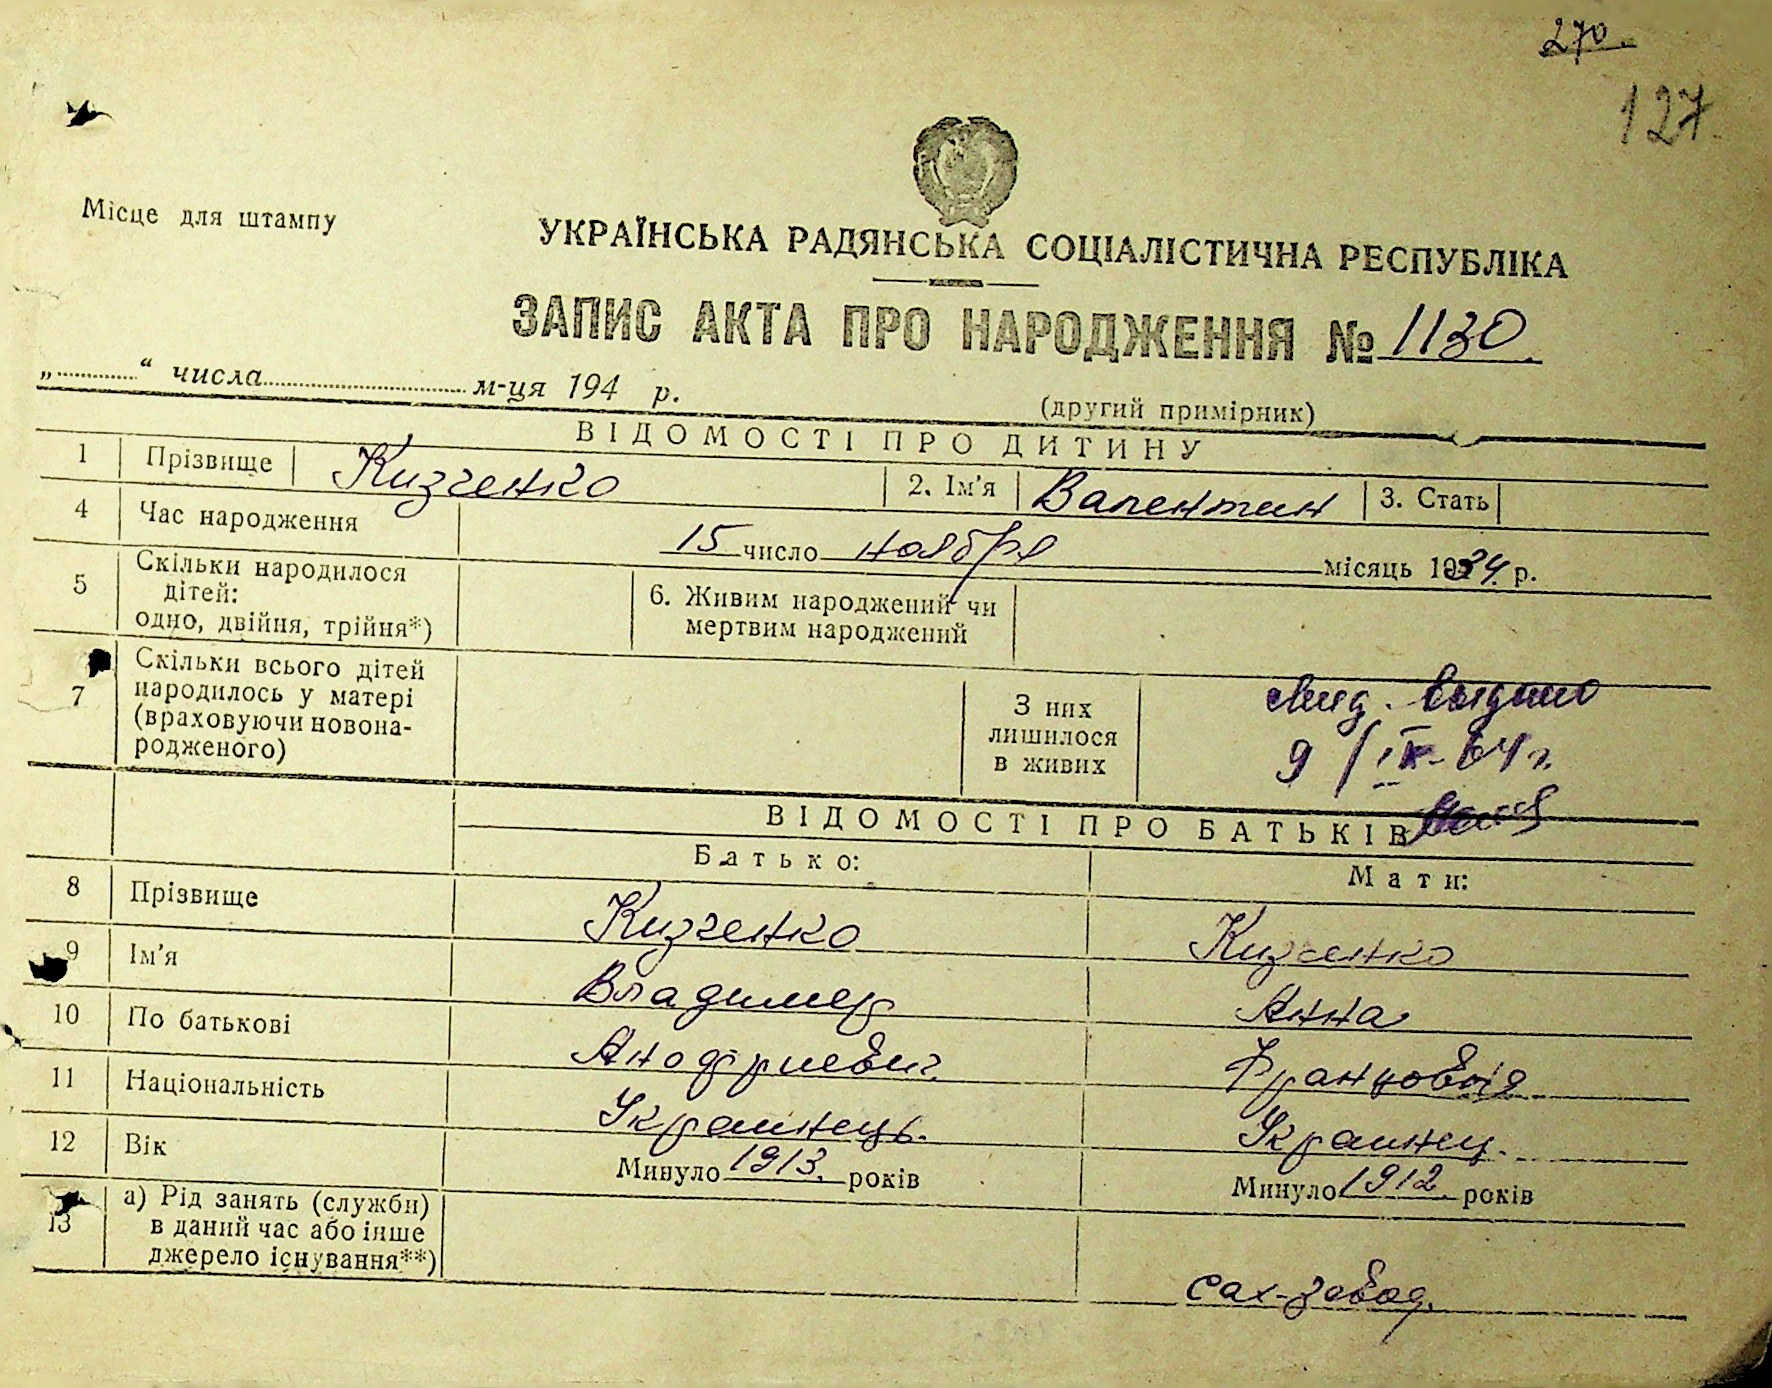 270.
127
Місце для штампу
УКРАЇНСЬКА РАДЯНСЬКА СОЦІАЛІСТИЧНА РЕСПУБЛІКА
ЗАПИС АКТА ПРО НАРОДЖЕННЯ № 1130.
„..........“ числа.......................... м-ця 194 р.
(другий примірник)
ВІДОМОСТІ ПРО ДИТИНУ
1 Прізвище Кизченко 2. Ім'я Валентин 3. Стать
4 Час народження 15 число ноября місяць 1934. р.
5 Скільки народилося
дітей:
одно, двійня, трійня*)
6. Живим народжений чи
мертвим народжений
7 Скільки всього дітей
народилось у матері
(враховуючи новона-
родженого)
З них
лишилося
в живих
9/IX-64 г.
ВІДОМОСТІ ПРО БАТЬКІВ
Батько: Мати:
8 Прізвище Кизченко Кизченко
9 Ім'я Владимер Анна
10 По батькові Францовия
11 Національність Украинець. Украинец.
12 Вік Минуло 1913. років Минуло 1912 років
13 а) Рід занять (служби)
в даний час або інше
джерело існування**)
сах-завод.